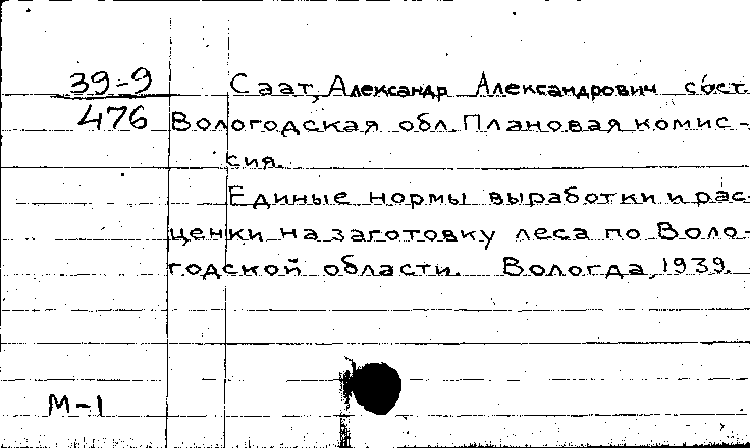 39-9
476
Саат, Александр Александрович сост.
Вологодская обл. Плановая комис-
сия.
Единые нормы выработки и рас-
ценки на заготовку леса по Воло-
годской области. Вологда, 1939.
М-1